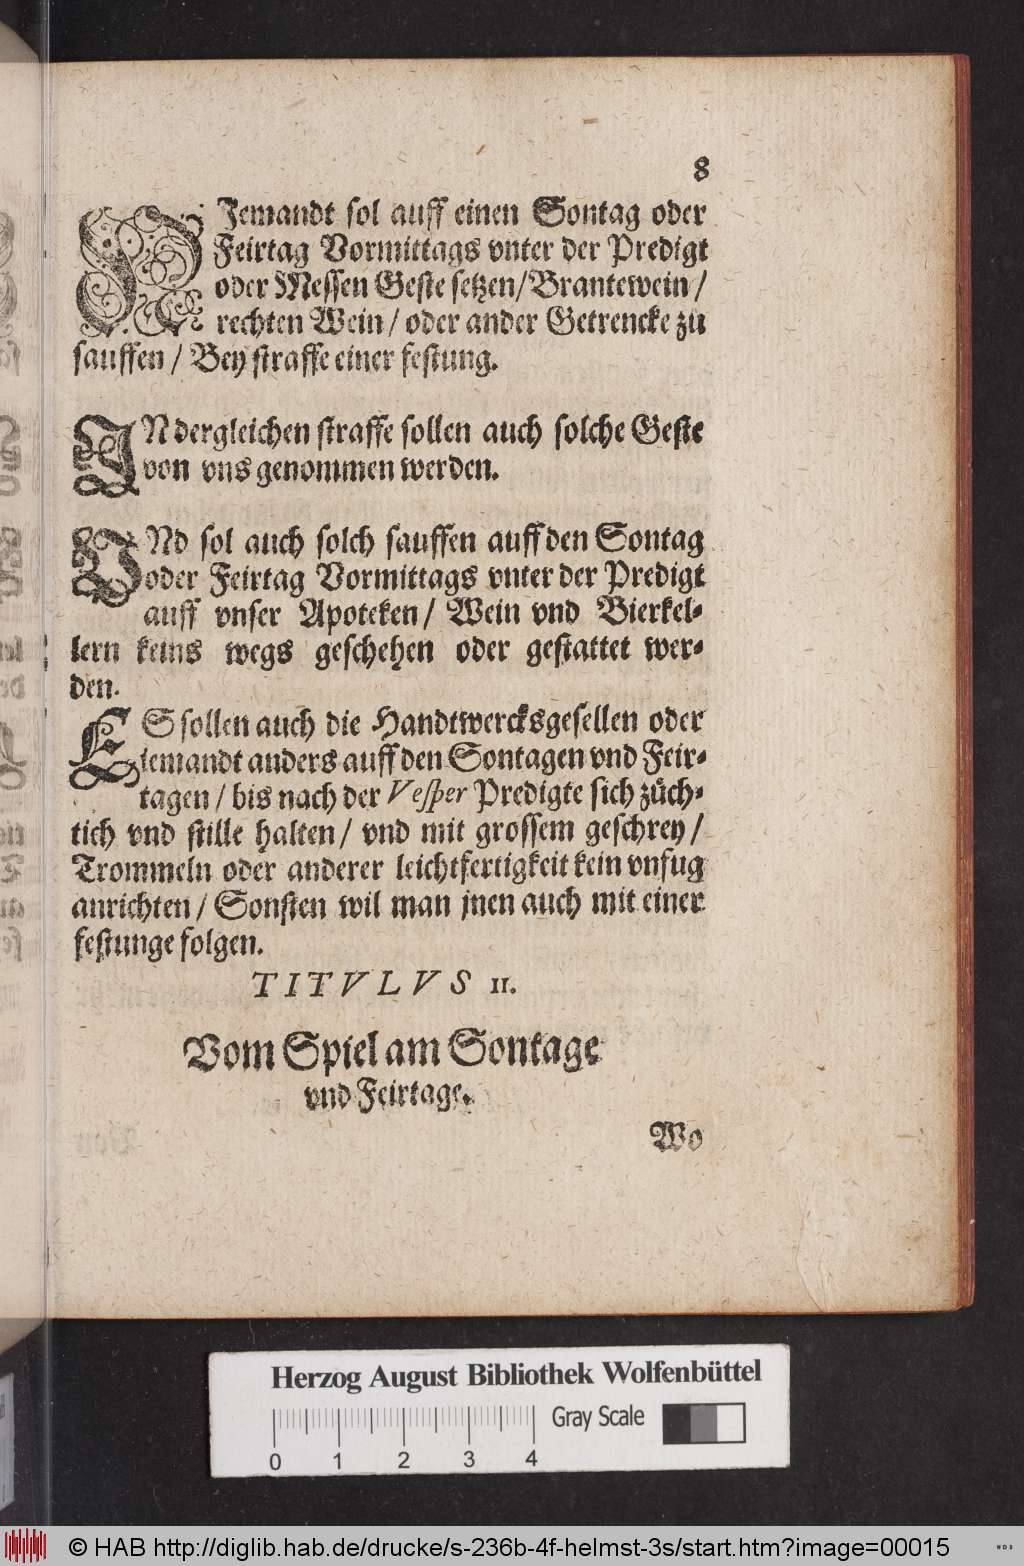 8
NJemandt sol auff einen Sontag oder
Feirtag Vormittags vnter der Predigt
oder Messen Geste setzen/Brantewein/
rechten Wein/ oder ander Getrencke zu
sauffen/ Bey straffe einer festung.
IN dergleichen straffe sollen auch solche Geste
von vns genommen werden.
VNd sol auch solch sauffen auff den Sontag
oder Feirtag Vormittags vnter der Predigt
auff vnser Apoteken/ Wein vnd Bierkel-
lern keins wegs geschehen oder gestattet wer-
den.
ES sollen auch die Handtwercksgesellen oder
iemandt anders auff den Sontagen vnd Feir-
tagen/ bis nach der Vesper Predigte sich züch-
tich vnd stille halten/ vnd mit grossem geschrey/
Trommeln oder anderer leichtfertigkeit kein vnfug
anrichten/ Sonsten wil man jnen auch mit einer
festunge folgen.
TITVLVS II.
Vom Spiel am Sontage
vnd Feirtage.
Wo
Herzog August Bibliothek Wolfenbüttel
Gray Scale
0 1 2 3 4
© HAB http://diglib.hab.de/drucke/s-236b-4f-helmst-3s/start.htm?image=00015